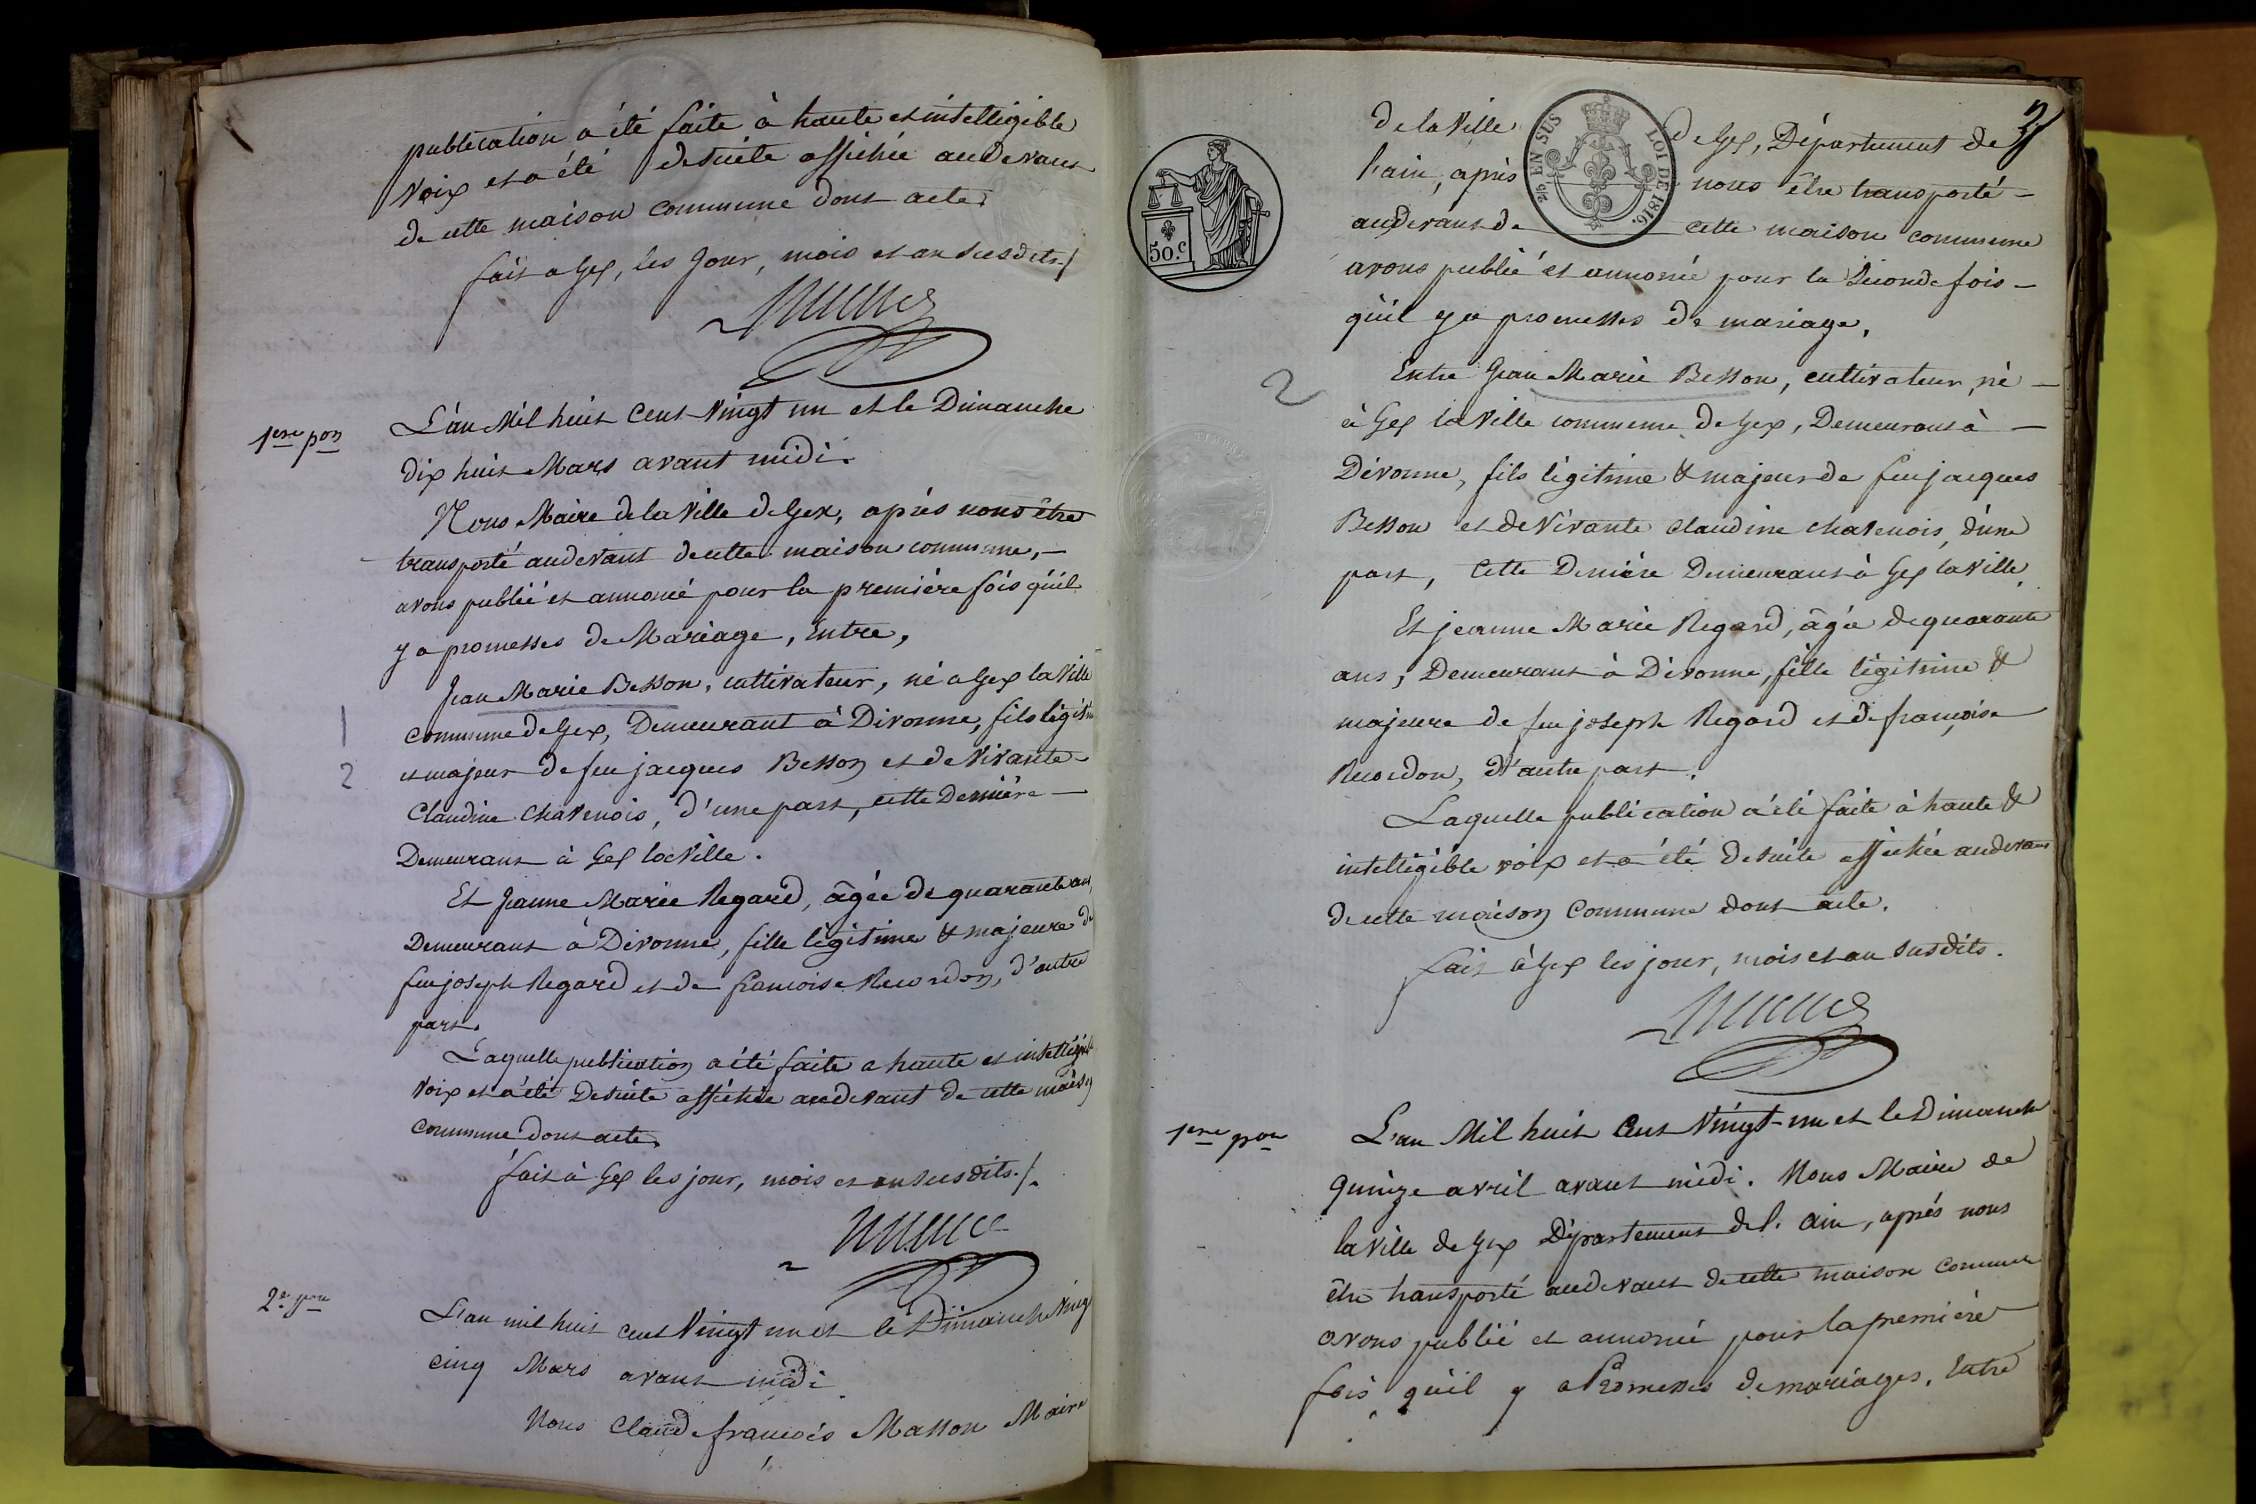 publication a été faite à haute et intelligible
voix et a été de suite affichée au devant
de cette maison commune dont acte.
fait a Gex, les Jour, mois et an susdits./
1ere pon
L'an Mil huit Cent Vingt un et le Dimanche
dix huit Mars avant midi.
Nous Maire de la Ville de Gex, après nous être
transporté au devant de cette maison commune, —
avons publié et annoncé pour la première fois qu'il
y a promesses de Mariage, Entre,
Jean Marie Besson, cultivateur, né a Gex la Ville
1
commune de Gex, Demeurant à Divonne, fils légiti
2
et majeur de feu jacques Besson et de Vivante
Claudine Chavenois, d'une part, cette Dernière —
Demeurant à Gex la Ville.
Et Jeanne Marie Regard, âgée de quarante ans,
Demeurant à Divonne, fille légitime & majeure de
feu joseph Regard et de francoise Recordon, d'autre
part.
Laquelle publication a été faite a haute et intelligible
Voix et a été De suite affichée au devant de cette maison
commune dont acte.
fait à Gex les jour, mois et an susdits./.
2e pon
L'an mil huit cent Vingt un et le Dimanche Vingt
cinq Mars avant midi
Nous Claude françois Masson Maire
2/10 EN SUS
LOI DE 1816.
50.c
de la Ville de Gex, Département de
l'ain, après nous être transporté —
au devant de cette maison commune
avons publié et annoncé pour la Seconde fois —
qu'il y a promesses de mariage,
2
Entre Jean Marie Besson, cultivateur, né —
à Gex la Ville commune de Gex, Demeurant à —
Divonne, fils légitime & majeur de feu jacques
Besson et de Vivante Claudine Chavenois, d'une
part, Cette Dernière Demeurant à Gex la Ville.
Et jeanne Marie Regard, âgée de quarante
ans, Demeurant à Divonne, fille légitime &
majeure de feu joseph Regard et de françoise
Recordon, d'autre part.
Laquelle publication a été faite à haute &
intelligible voix et a été de suite affichée au devant
de cette maison Commune dont acte.
fait à Gex les jour, mois et an susdits.
1ere pon
L'an Mil huit Cent Vingt-un et le Dimanche
quinze avril avant midi. Nous Maire de
la Ville de Gex Département de l'ain, après nous
être transporté au devant de cette maison commune
avons publié et annoncé pour la première
fois qu'il y a Promesses de mariages, Entre